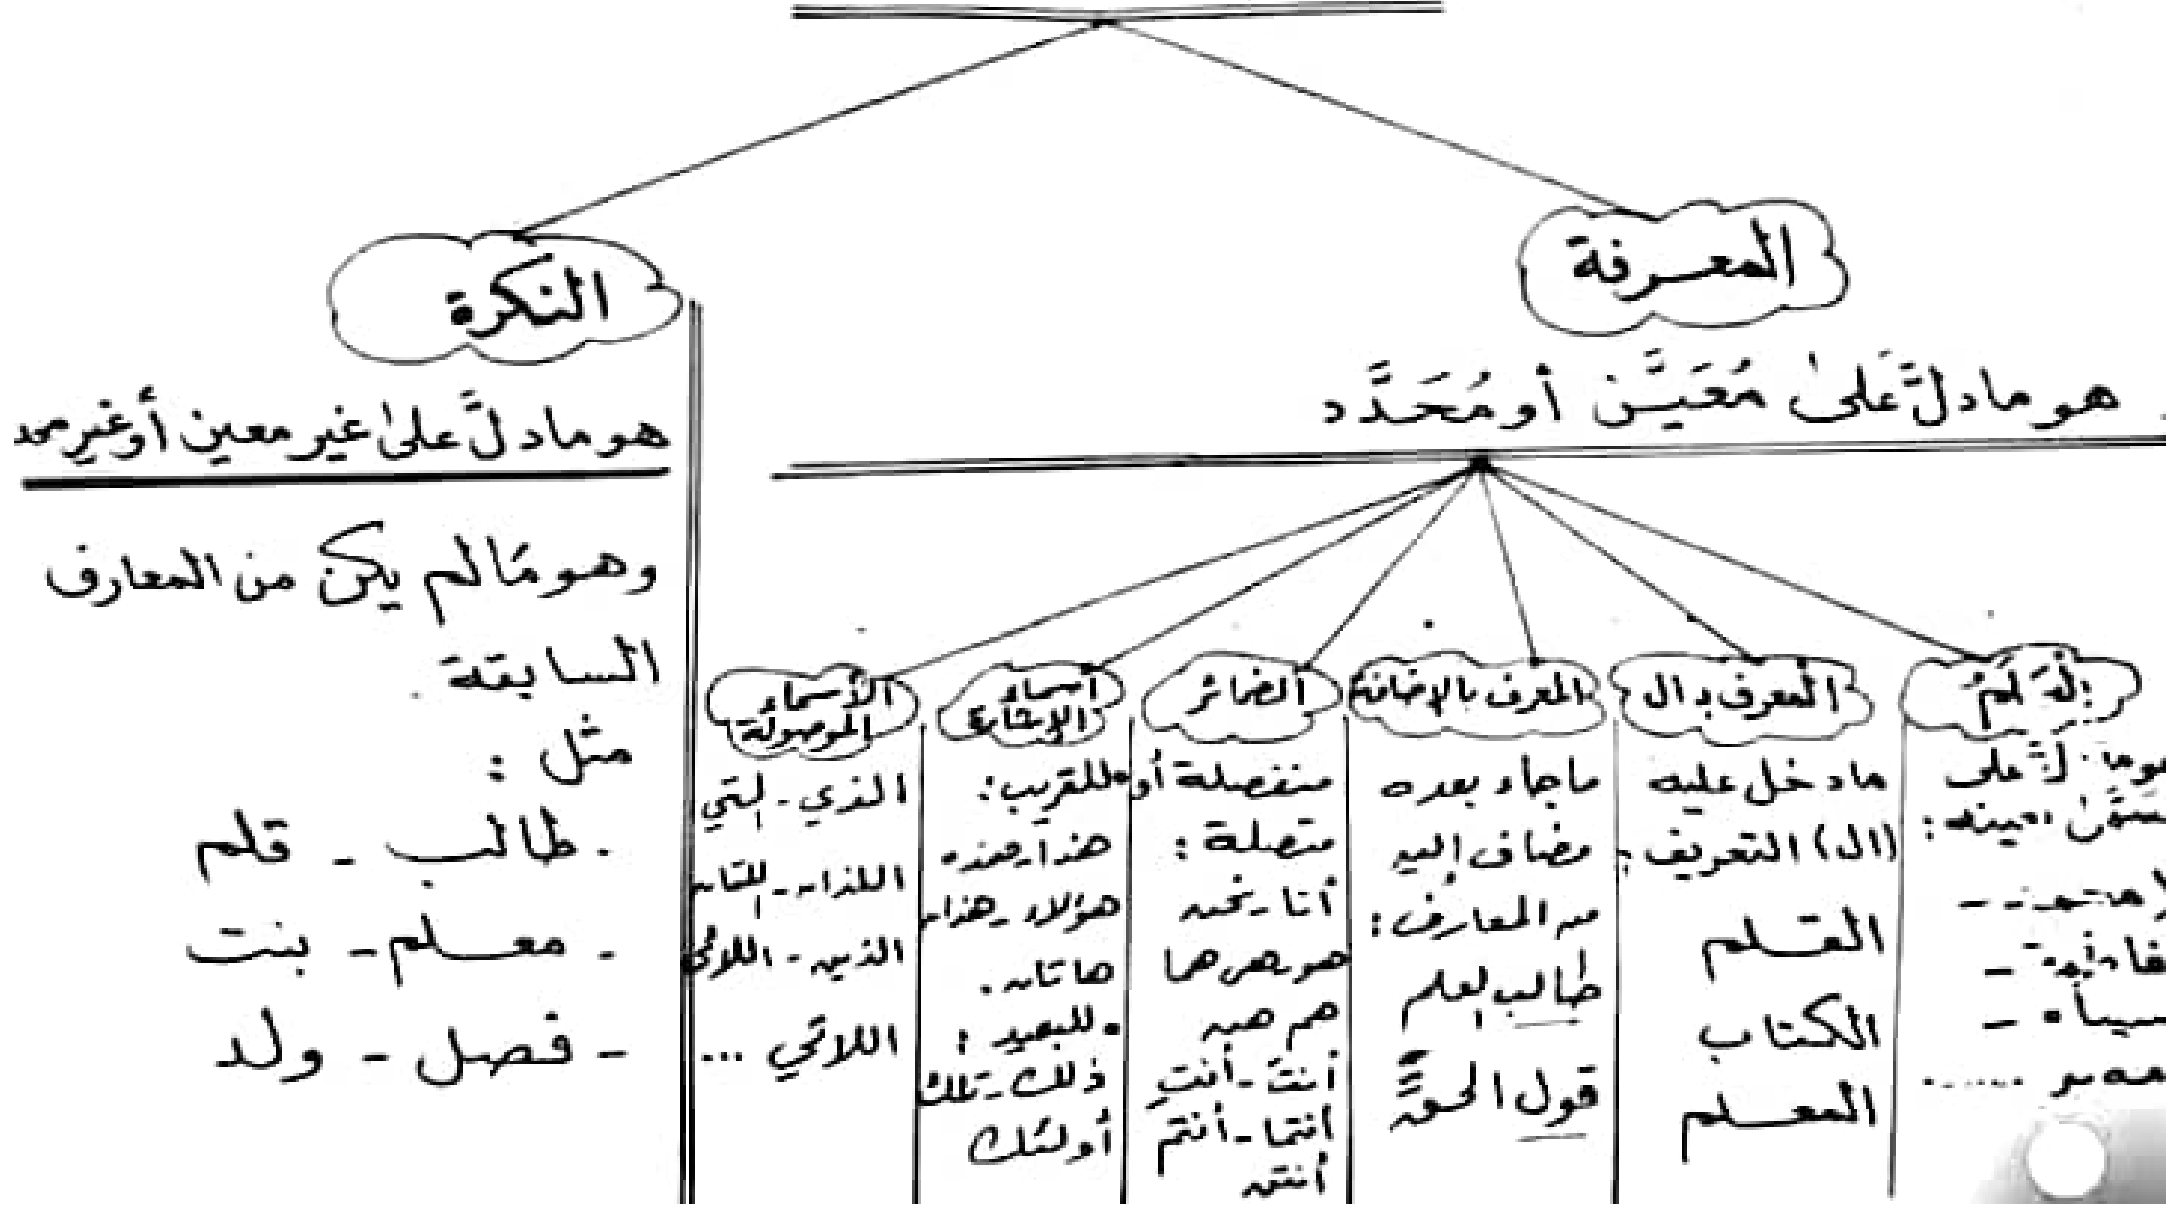 المعرفة
هو ما دلَّ عَلىٰ مُعَيَّن أو مُحَدَّد
العَلَمُ
على
المعرف بـ ال
ما دخل عليه
(ال) التعريف:
القلم
الكتاب
المعلم
المعرف بالإضافة
ما جاء بعده
مضاف إليه
من المعارف:
طالب العلم
قول الحقِّ
الضمائر
منفصلة أو
متصلة:
أنا - نحن
هو هي هما
هم هن
أنتَ - أنتِ
أنتما - أنتم
أنتن
أسماء
الإشارة
للقريب:
هذا - هذه
هؤلاء - هذان
هاتان.
للبعيد:
ذلك - تلك
أولئك
الأسماء
الموصولة
الذي - التي
اللذان - اللتان
الذين - اللائي
اللاتي ...
النكرة
هو ما دلَّ علىٰ غير معين أو غير محد
وهو مَا لم يكن من المعارف
السابقة.
مثل:
. طالب - قلم
- معلم - بنت
- فصل - ولد